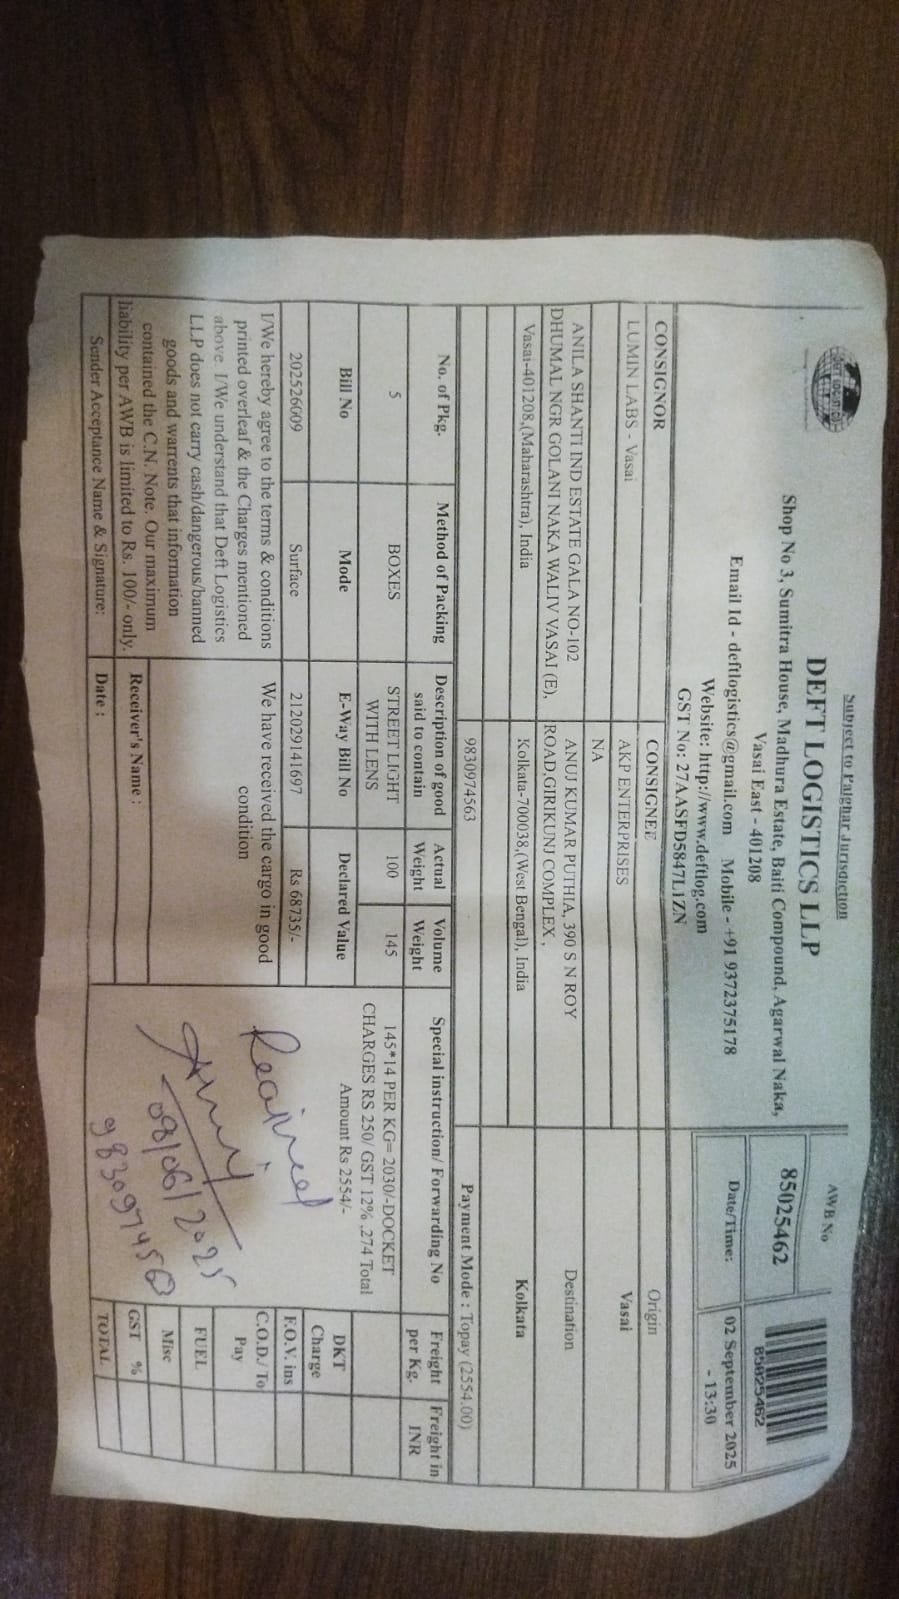 Subject to Palghar Jurisdiction
DEFT LOGISTICS LLP
Shop No 3, Sumitra House, Madhura Estate, Baiti Compound, Agarwal Naka,
Vasai East - 401208
Email Id - deftlogistics@gmail.com Mobile - +91 9372375178
Website: http://www.deftlog.com
GST No: 27AASFD5847L1ZN
AWB No
85025462
85025462
Date/Time:
02 September 2025
- 13:30
CONSIGNOR
CONSIGNEE
Origin
LUMIN LABS - Vasai
AKP ENTERPRISES
Vasai
NA
ANILA SHANTI IND ESTATE GALA NO-102
DHUMAL NGR GOLANI NAKA WALIV VASAI (E),
ANUJ KUMAR PUTHIA, 390 S N ROY
ROAD,GIRIKUNJ COMPLEX ,
Destination
Vasai-401208,(Maharashtra), India
Kolkata-700038,(West Bengal), India
Kolkata
9830974563
Payment Mode : Topay (2554.00)
No. of Pkg.
Method of Packing
Description of good
said to contain
Actual
Weight
Volume
Weight
Special instruction/ Forwarding No
Freight
per Kg.
Freight in
INR
5
BOXES
STREET LIGHT
WITH LENS
100
145
145*14 PER KG= 2030/-DOCKET
CHARGES RS 250/ GST 12% ,274 Total
Amount Rs 2554/-
Bill No
Mode
E-Way Bill No
Declared Value
DKT
Charge
202526009
Surface
212029141697
Rs 68735/-
F.O.V. ins
I/We hereby agree to the terms & conditions
printed overleaf & the Charges mentioned
above I/We understand that Deft Logistics
LLP does not carry cash/dangerous/banned
goods and warrents that information
contained the C.N. Note. Our maximum
liability per AWB is limited to Rs. 100/- only.
We have received the cargo in good
condition
Receiver's Name :
Sender Acceptance Name & Signature:
Date :
08/06/2025
C.O.D./ To
Pay
FUEL
Misc
GST %
TOTAL